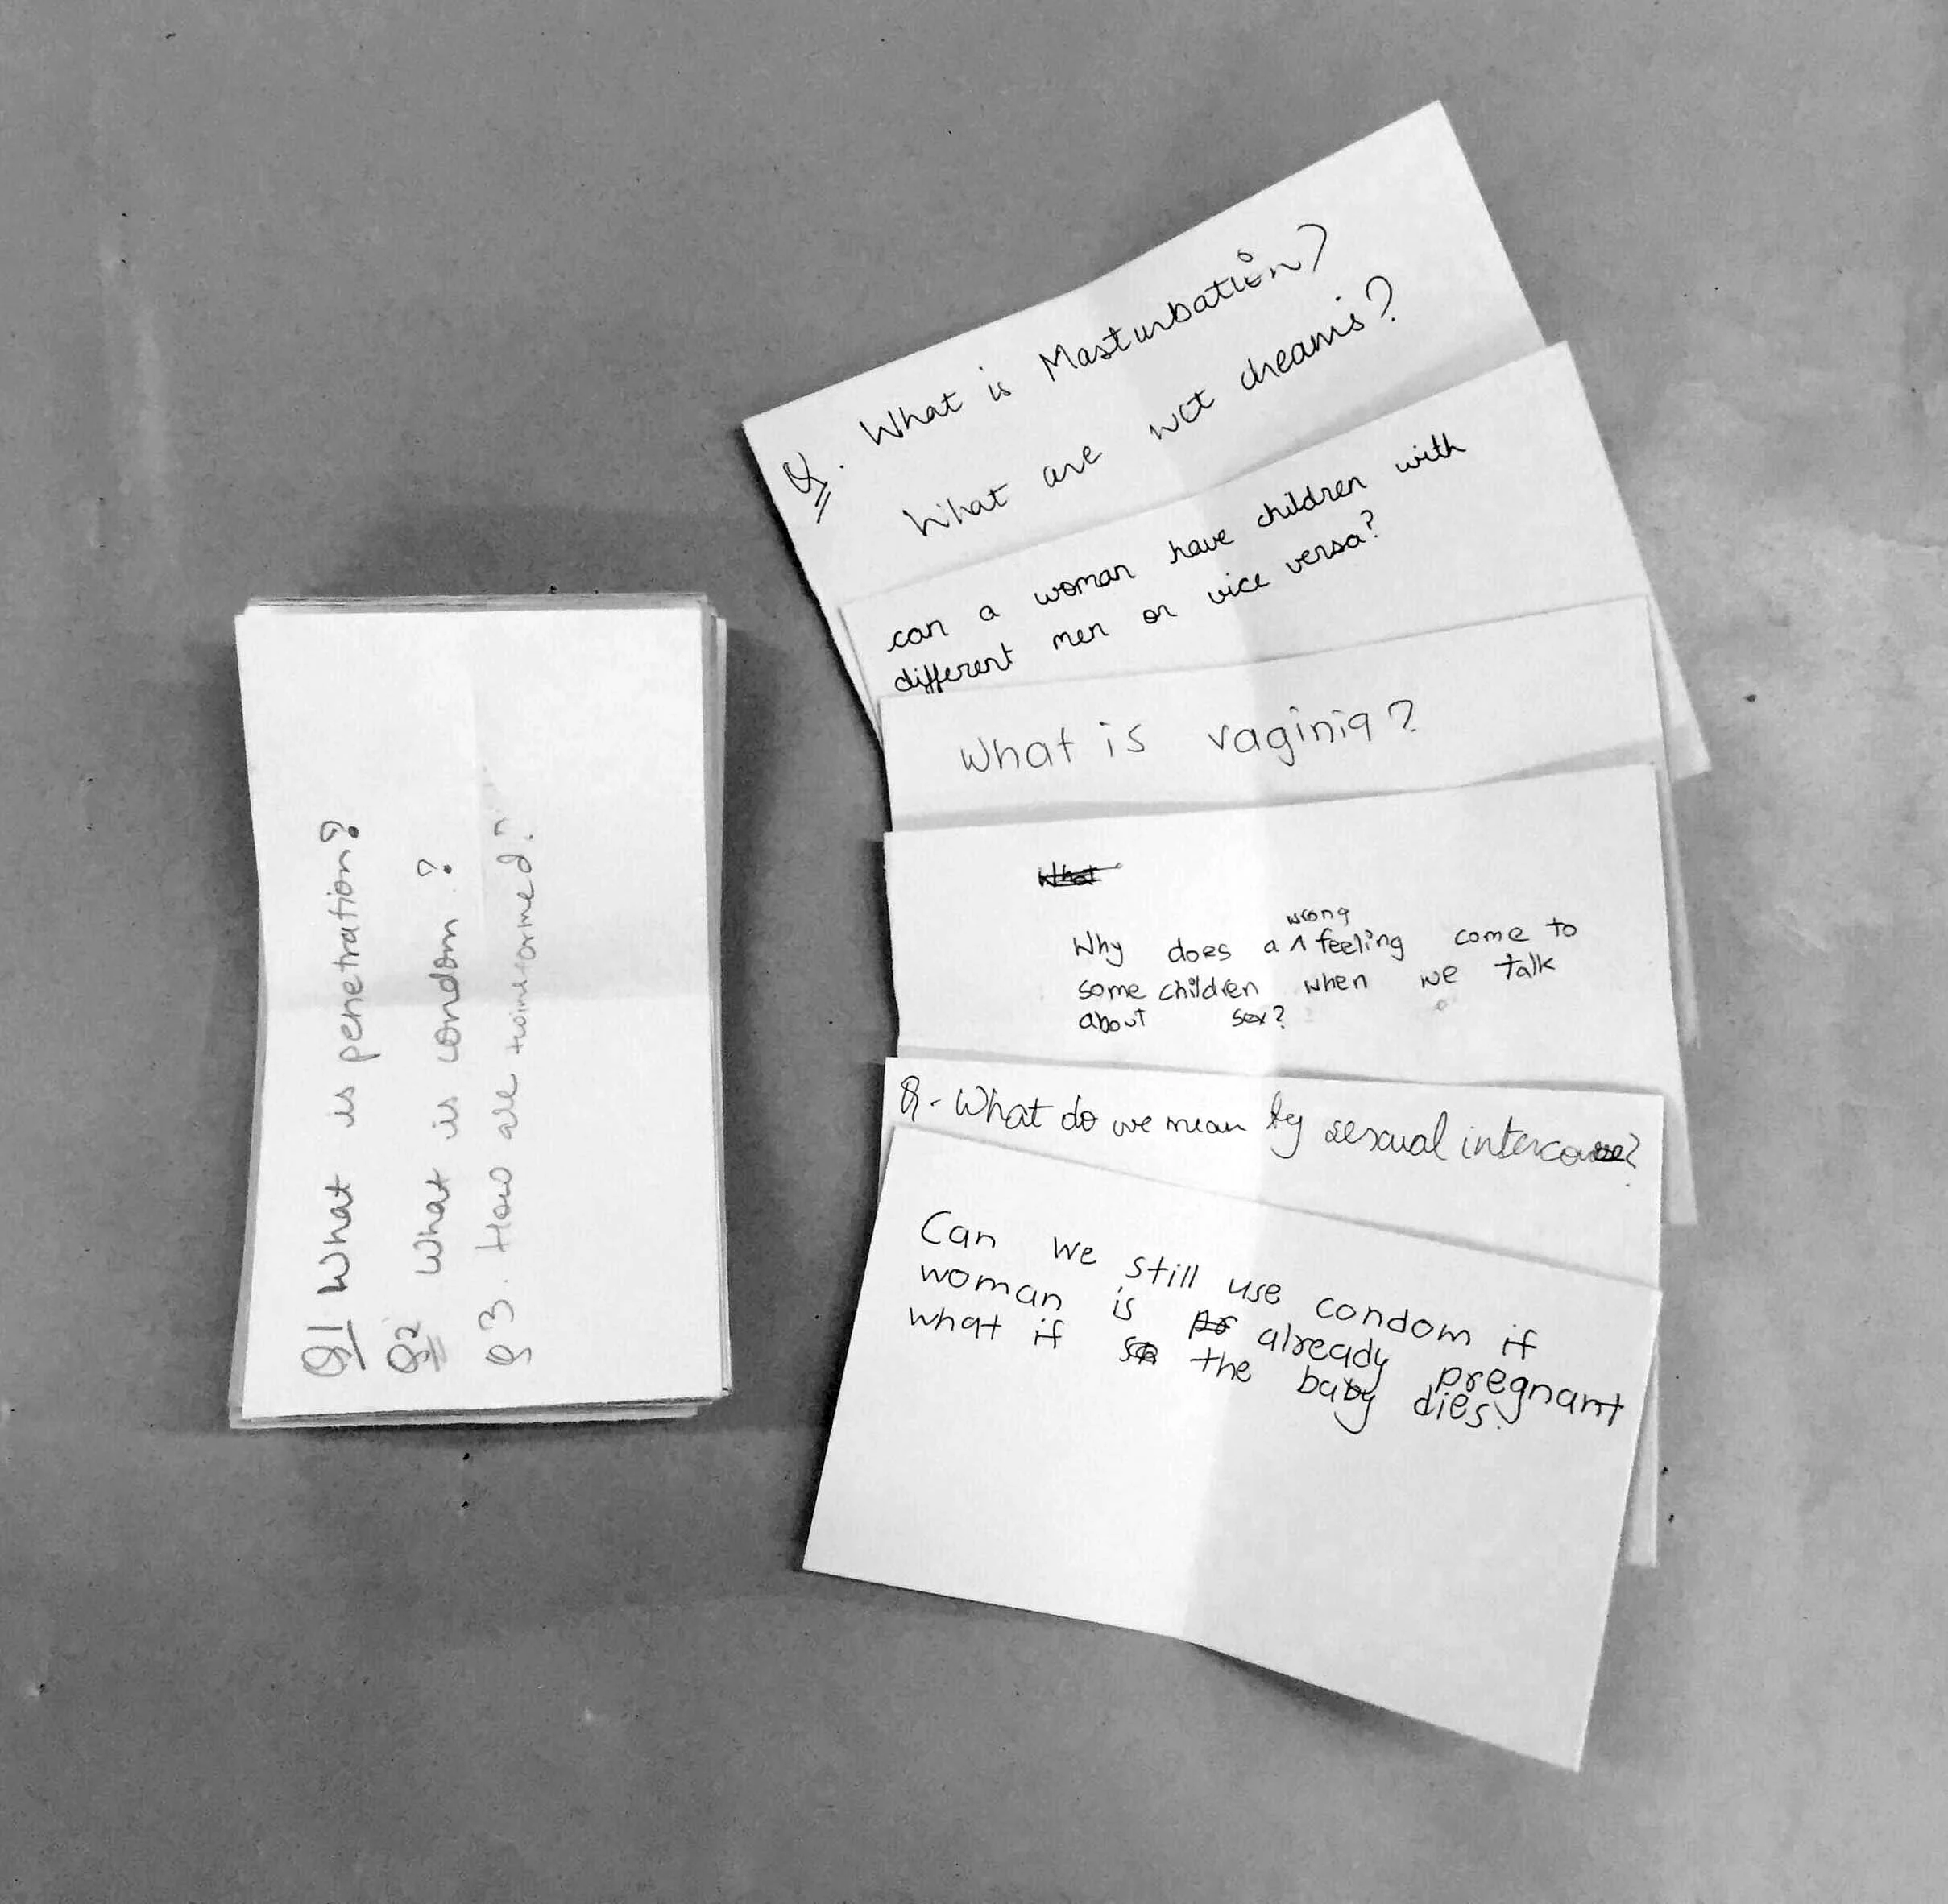 Q1 What is penetration?
Q2 What is condom?
Q3. How are twins formed?
Q. What is Masturbation?
What are wet dreams?
can a woman have children with
different men or vice versa?
What is vaginia?
What
wrong
Why does a ^ feeling come to
some children when we talk
about sex?
Q- What do we mean by sexual intercourse?
Can we still use condom if
woman is already pregnant
what if the baby dies.